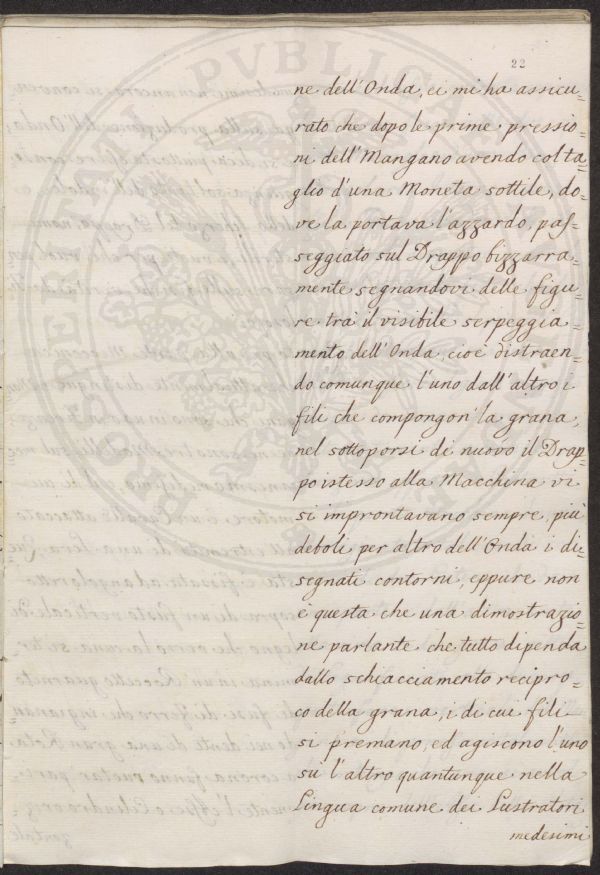 22
ne dell'Onda, ei mi ha assicu=
rato che dopo le prime pressio=
ni dell'Mangano avendo col ta=
glio d'una Moneta sottile, do=
ve la portava l'azzardo, pas=
seggiato sul Drappo bizzarra=
mente segnandovi delle figu=
re trà il visibile serpeggia=
mento dell'Onda, cioè distraen=
do comunque l'uno dall'altro i
fili che compongon' la grana,
nel sottoporsi di nuovo il Drap=
po istesso alla Macchina vi
si improntavano sempre, più
deboli per altro dell'Onda i di=
segnati contorni, eppure non
è questa che una dimostrazio=
ne parlante che tutto dipenda
dallo schiacciamento recipro=
co della grana, i di cui fili
si premano, ed agiscono l'uno
sù l'altro quantunque nella
Lingua comune dei Lustratori
medesimi